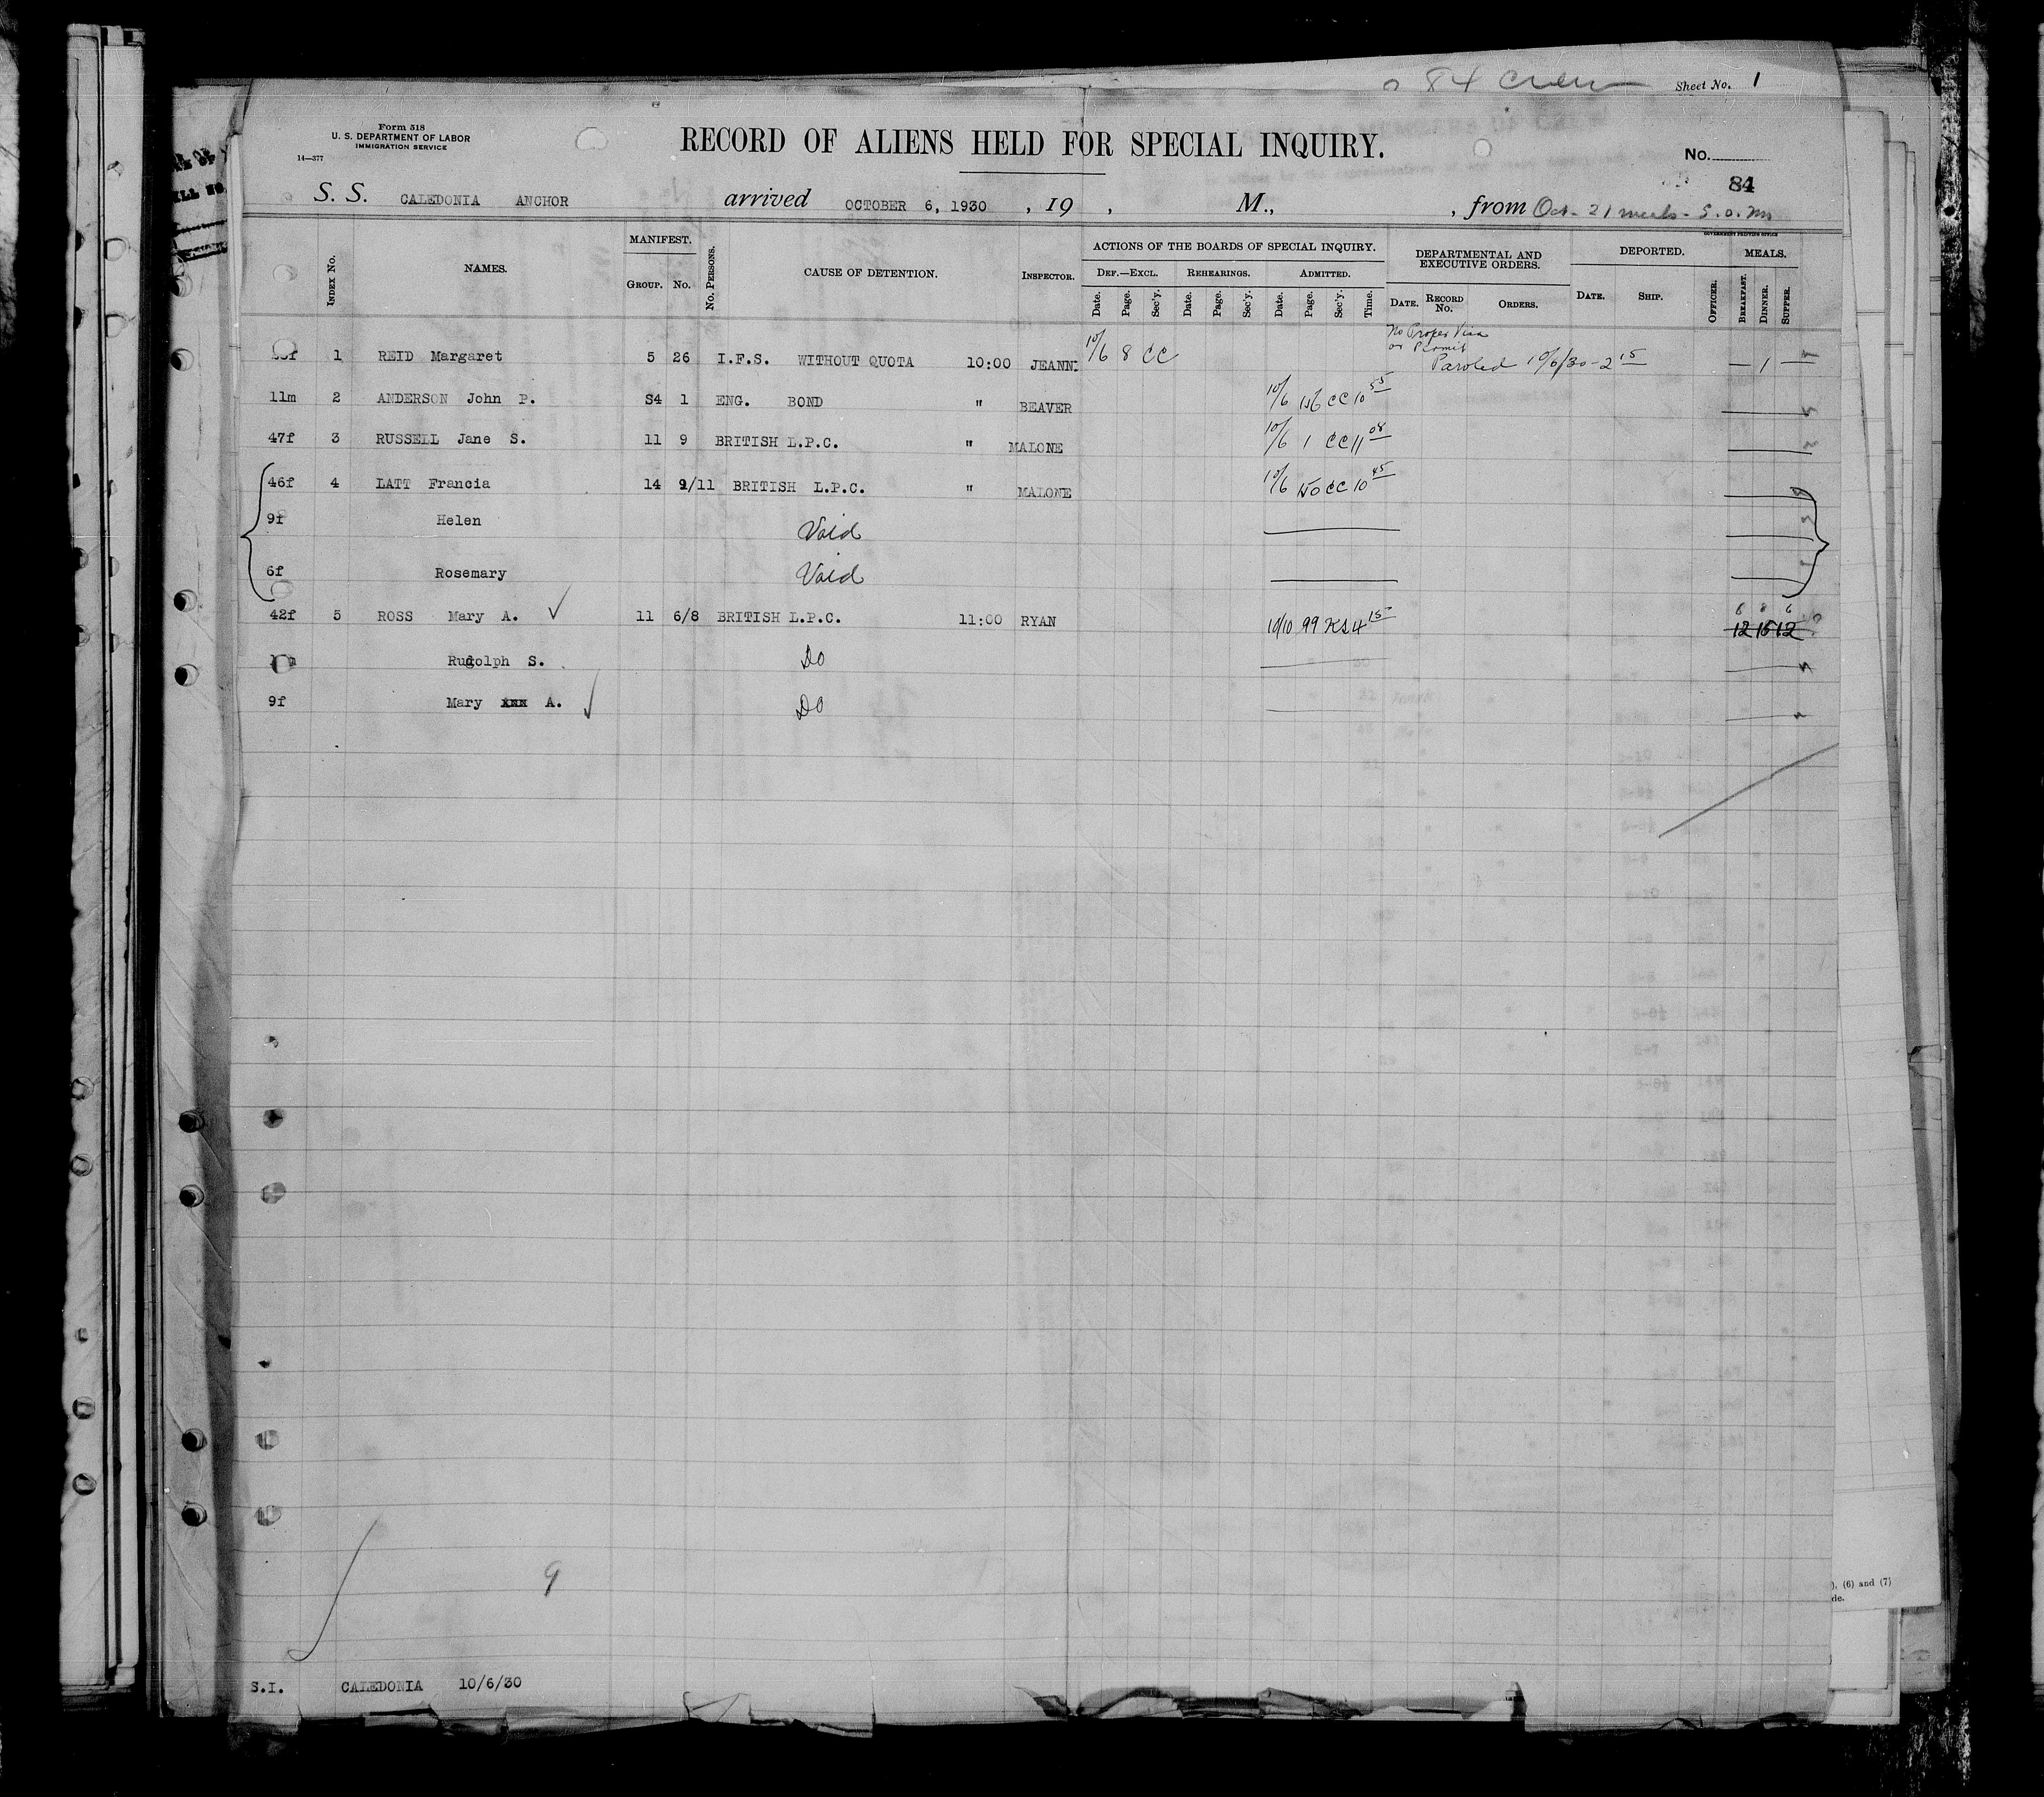 84 Crew
Sheet No. 1
Form 518
U. S. DEPARTMENT OF LABOR
IMMIGRATION SERVICE
14—377
RECORD OF ALIENS HELD FOR SPECIAL INQUIRY.
No.
84
S. S. CALEDONIA ANCHOR arrived OCTOBER 6, 1930 , 19 , M., , from Oct - 21 meals - S.O.
GOVERNMENT PRINTING OFFICE
INDEX No. NAMES. MANIFEST. GROUP. No. No. PERSONS. CAUSE OF DETENTION. INSPECTOR. ACTIONS OF THE BOARDS OF SPECIAL INQUIRY. DEF.—EXCL. Date. Page. Sec'y. REHEARINGS. Date. Page. Sec'y. ADMITTED. Date. Page. Sec'y. Time. DEPARTMENTAL AND EXECUTIVE ORDERS. DATE. RECORD No. ORDERS. DEPORTED. DATE. SHIP. OFFICER. MEALS. BREAKFAST. DINNER. SUPPER.
No Proper Visa
or Permit
1 REID Margaret 5 26 I.F.S. WITHOUT QUOTA 10:00 JEANN 10/6 8 CC Paroled 10/6/30 - 2 15 — 1 —
11m 2 ANDERSON John P. S4 1 ENG. BOND " BEAVER 10/6 CC 10 55
47f 3 RUSSELL Jane S. 11 9 BRITISH L.P.C. " MALONE 10/6 1 CC 11 08
46f 4 LATT Francia 14 9/11 BRITISH L.P.C. " MALONE 10/6 150 CC 10 45
9f Helen Void
6f Rosemary Void
42f 5 ROSS Mary A. ✓ 11 6/8 BRITISH L.P.C. 11:00 RYAN 10/10 99 KS 4 15 6 8 6 12 15 12
Rudolph S. Do
9f Mary xxx A. ✓ Do
9
S.I. CALEDONIA 10/6/30
), (6) and (7)
de.